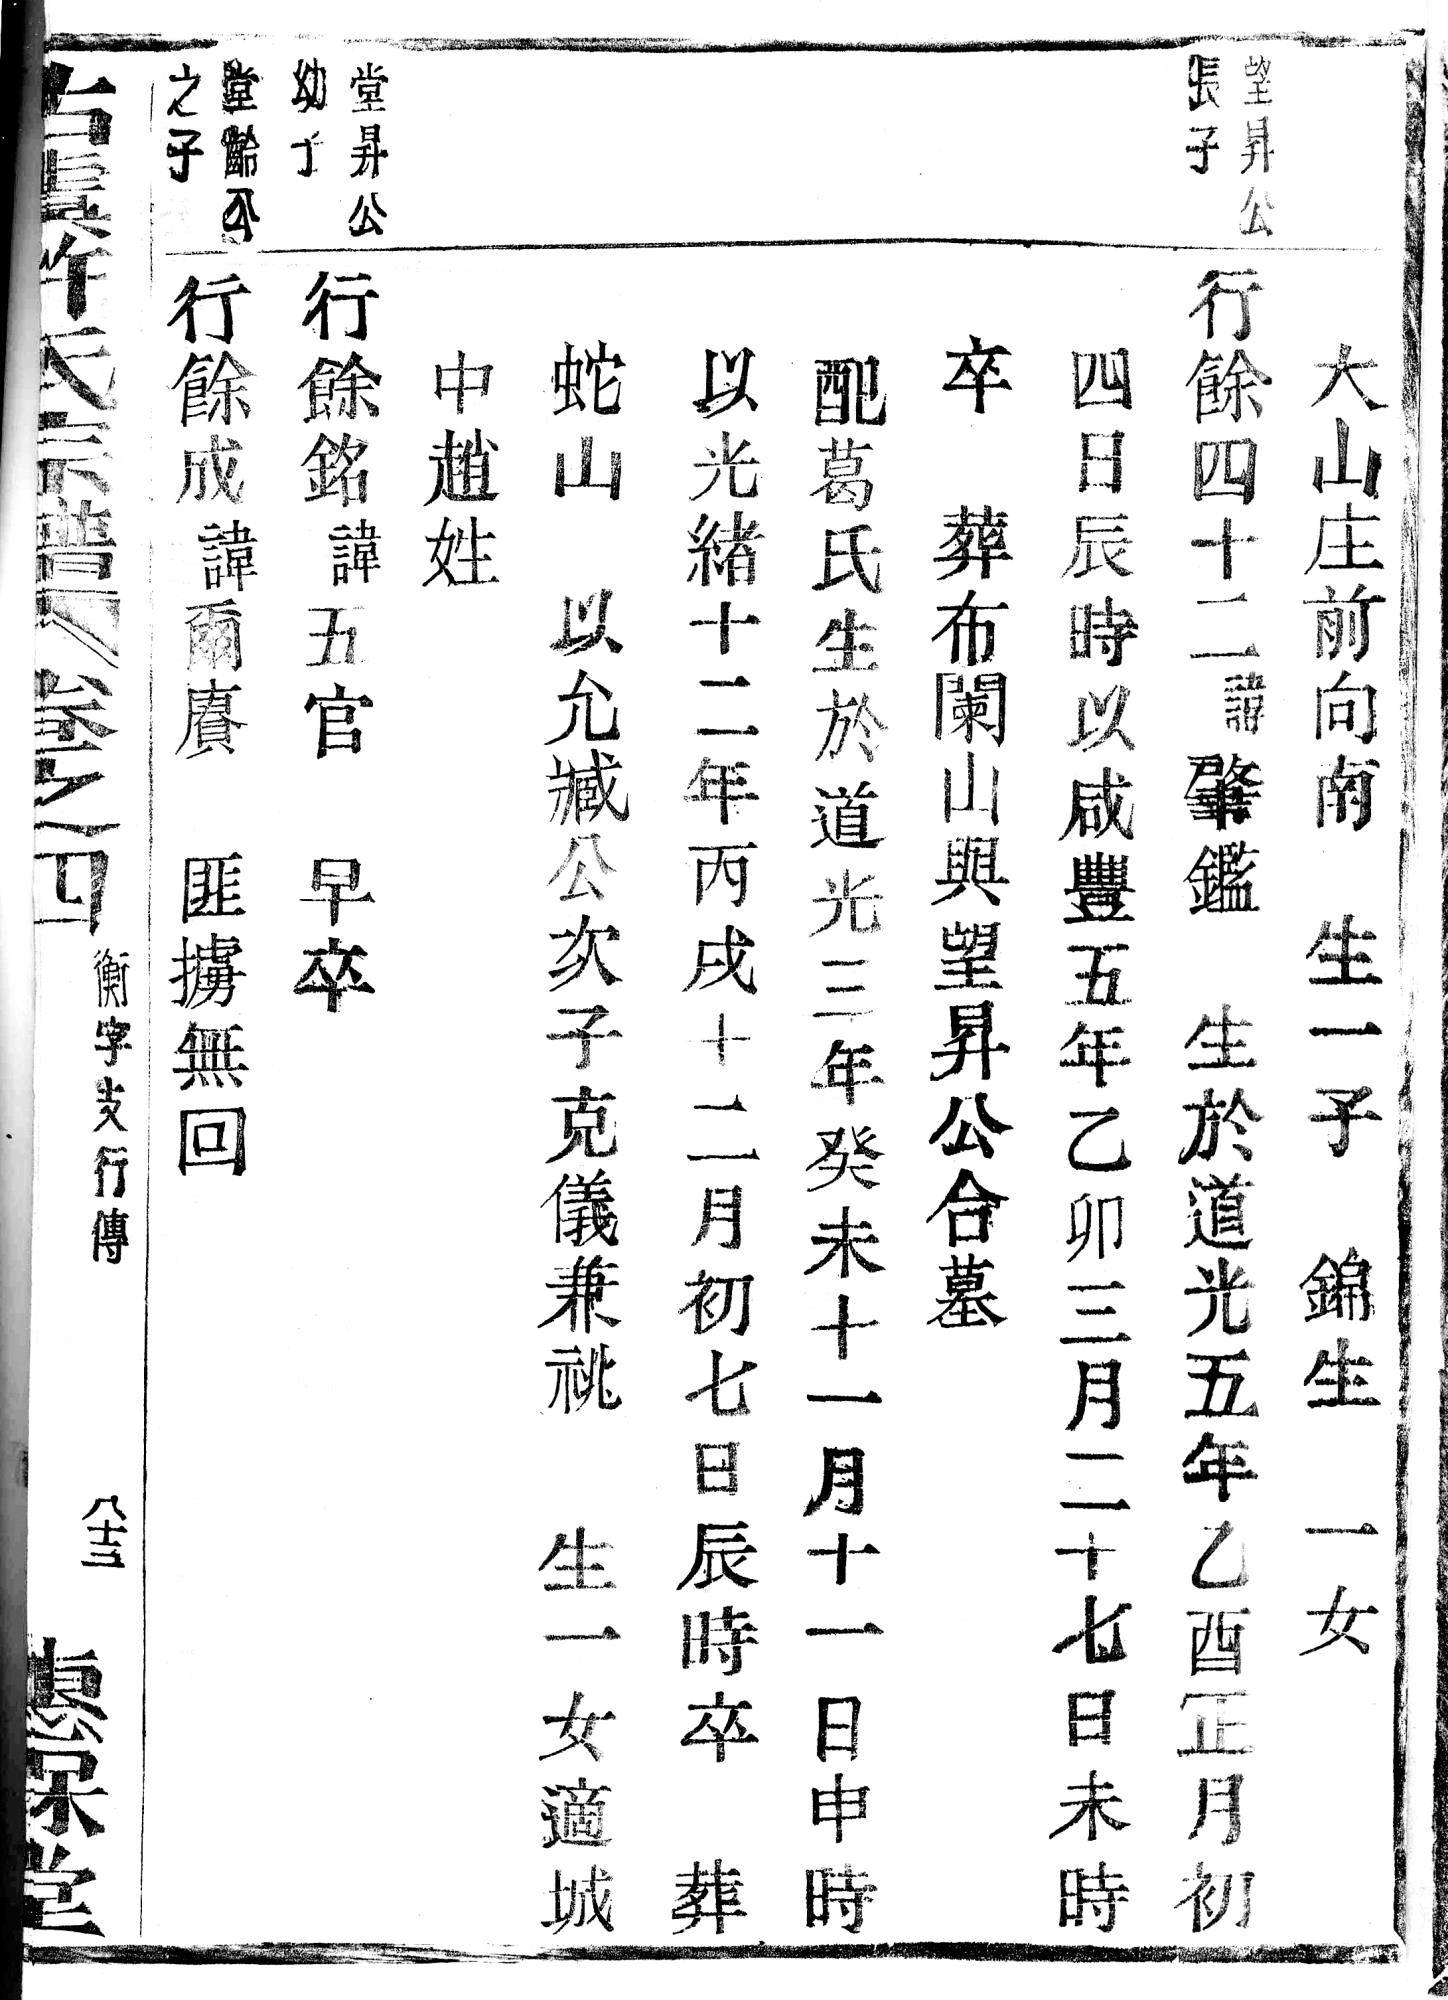 大山庄前向南　生一子　錦生　一女
望昇公
張子
行餘四十二諱肇鑑　生於道光五年乙酉正月初
四日辰時以咸豐五年乙卯三月二十七日未時
卒　葬布闌山與望昇公合墓
配葛氏生於道光三年癸未十一月十一日申時
以光緒十二年丙戌十二月初七日辰時卒　葬
蛇山　以允臧公次子克儀兼祧　生一女適城
中趙姓
堂昇公
幼子
行餘銘諱五官　早卒
堂齡公
之子
行餘成諱爾賡　匪擄無回
古虞許氏宗譜　卷之四　衡字支行傳　八十三　惠保堂